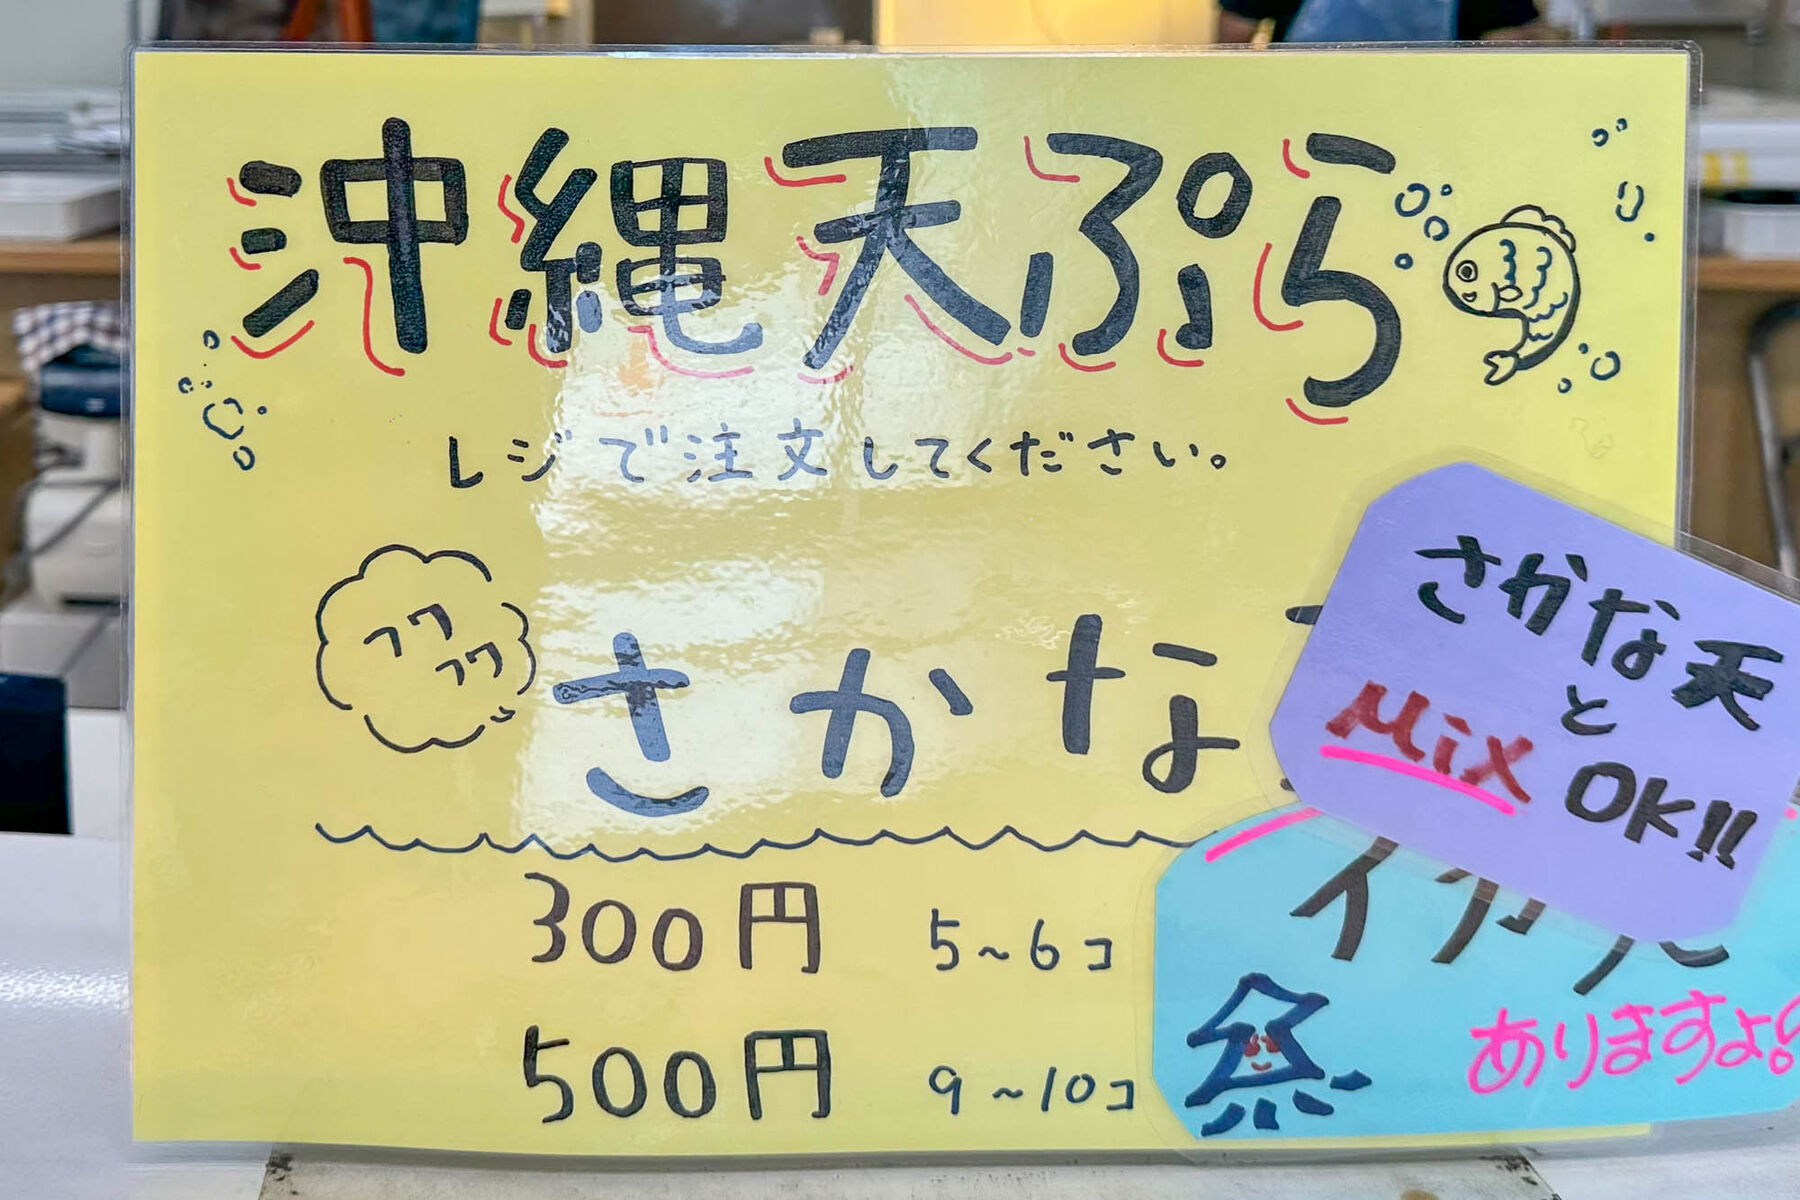 沖縄天ぷら
レジで注文してください。
フワ
フワ
さかな
300円 5~6コ
500円 9~10コ
さかな天
と
MiX OK!!
ありますよ